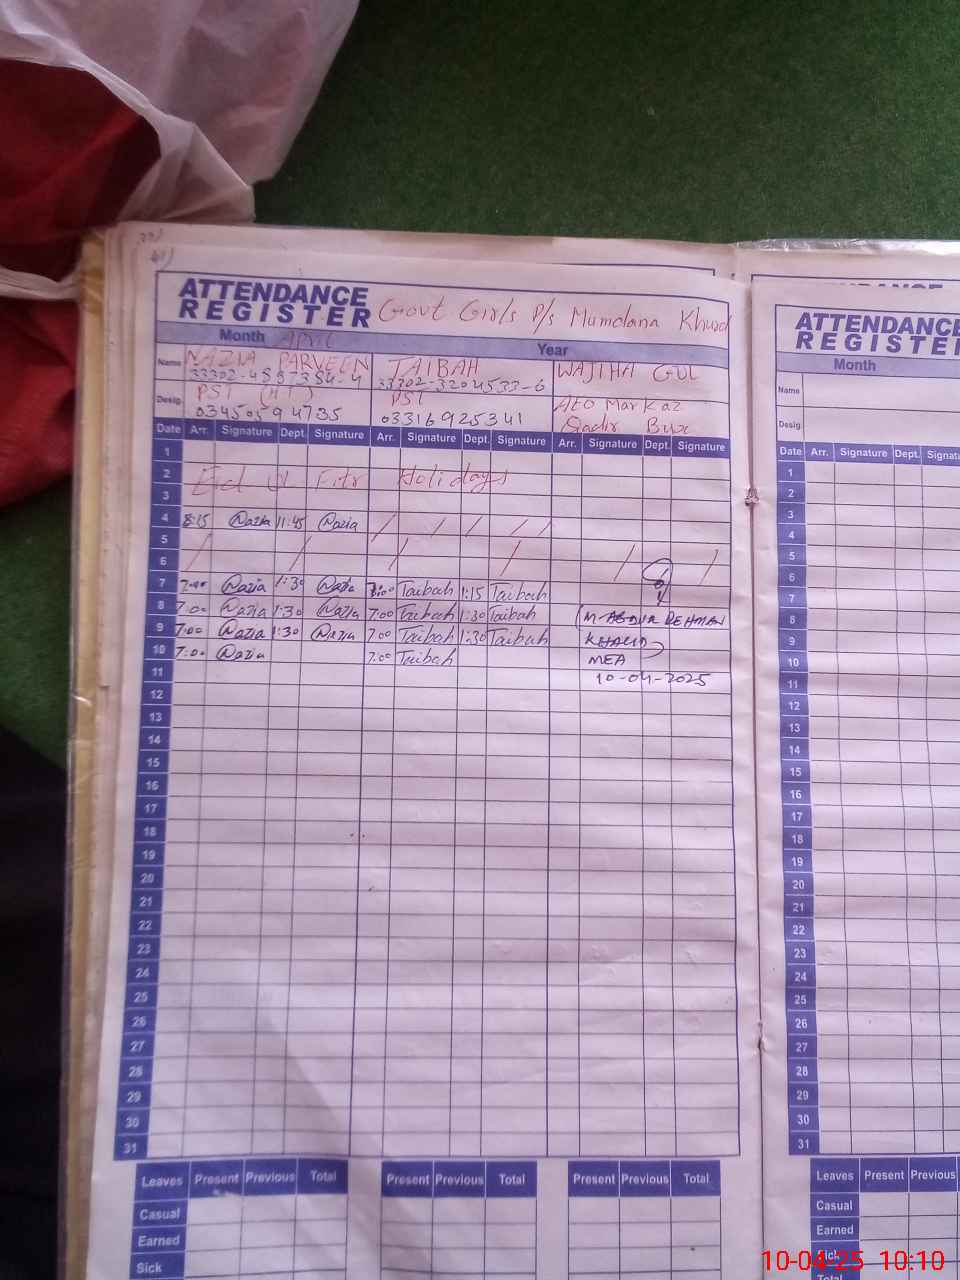 ATTENDANCE
REGISTER Govt Girls P/s Mumdana Khurd
Month April Year
Name NAZIA PARVEEN TAIBAH WAJIHA GUL
33302-4587384-4 33302-3204533-6
Desig. PST (HT) PST AEO Markaz
03450594735 03316925341 Sadir Bux
Date Arr. Signature Dept. Signature Arr. Signature Dept. Signature Arr. Signature Dept. Signature
1
2 Eid Ul Fitr Holidays
3
4 8:15 Nazia 11:45 Nazia
5
6
7 7:00 Nazia 1:30 Nazia 8:00 Taibah 1:15 Taibah
8 7:00 Nazia 1:30 Nazia 7:00 Taibah 1:30 Taibah (M-ABDUR REHMAN
9 7:00 Nazia 1:30 Nazia 7:00 Taibah 1:30 Taibah KHALID)
10 7:00 Nazia 7:00 Taibah MEA
11 10-04-2025
12
13
14
15
16
17
18
19
20
21
22
23
24
25
26
27
28
29
30
31
Leaves Present Previous Total Present Previous Total Present Previous Total
Casual
Earned
Sick
ATTENDANCE
REGISTER
Month
Name
Desig.
Date Arr. Signature Dept.
1
2
3
4
5
6
7
8
9
10
11
12
13
14
15
16
17
18
19
20
21
22
23
24
25
26
27
28
29
30
31
Leaves Present Previous
Casual
Earned
Sick
Total
10-04-25 10:10